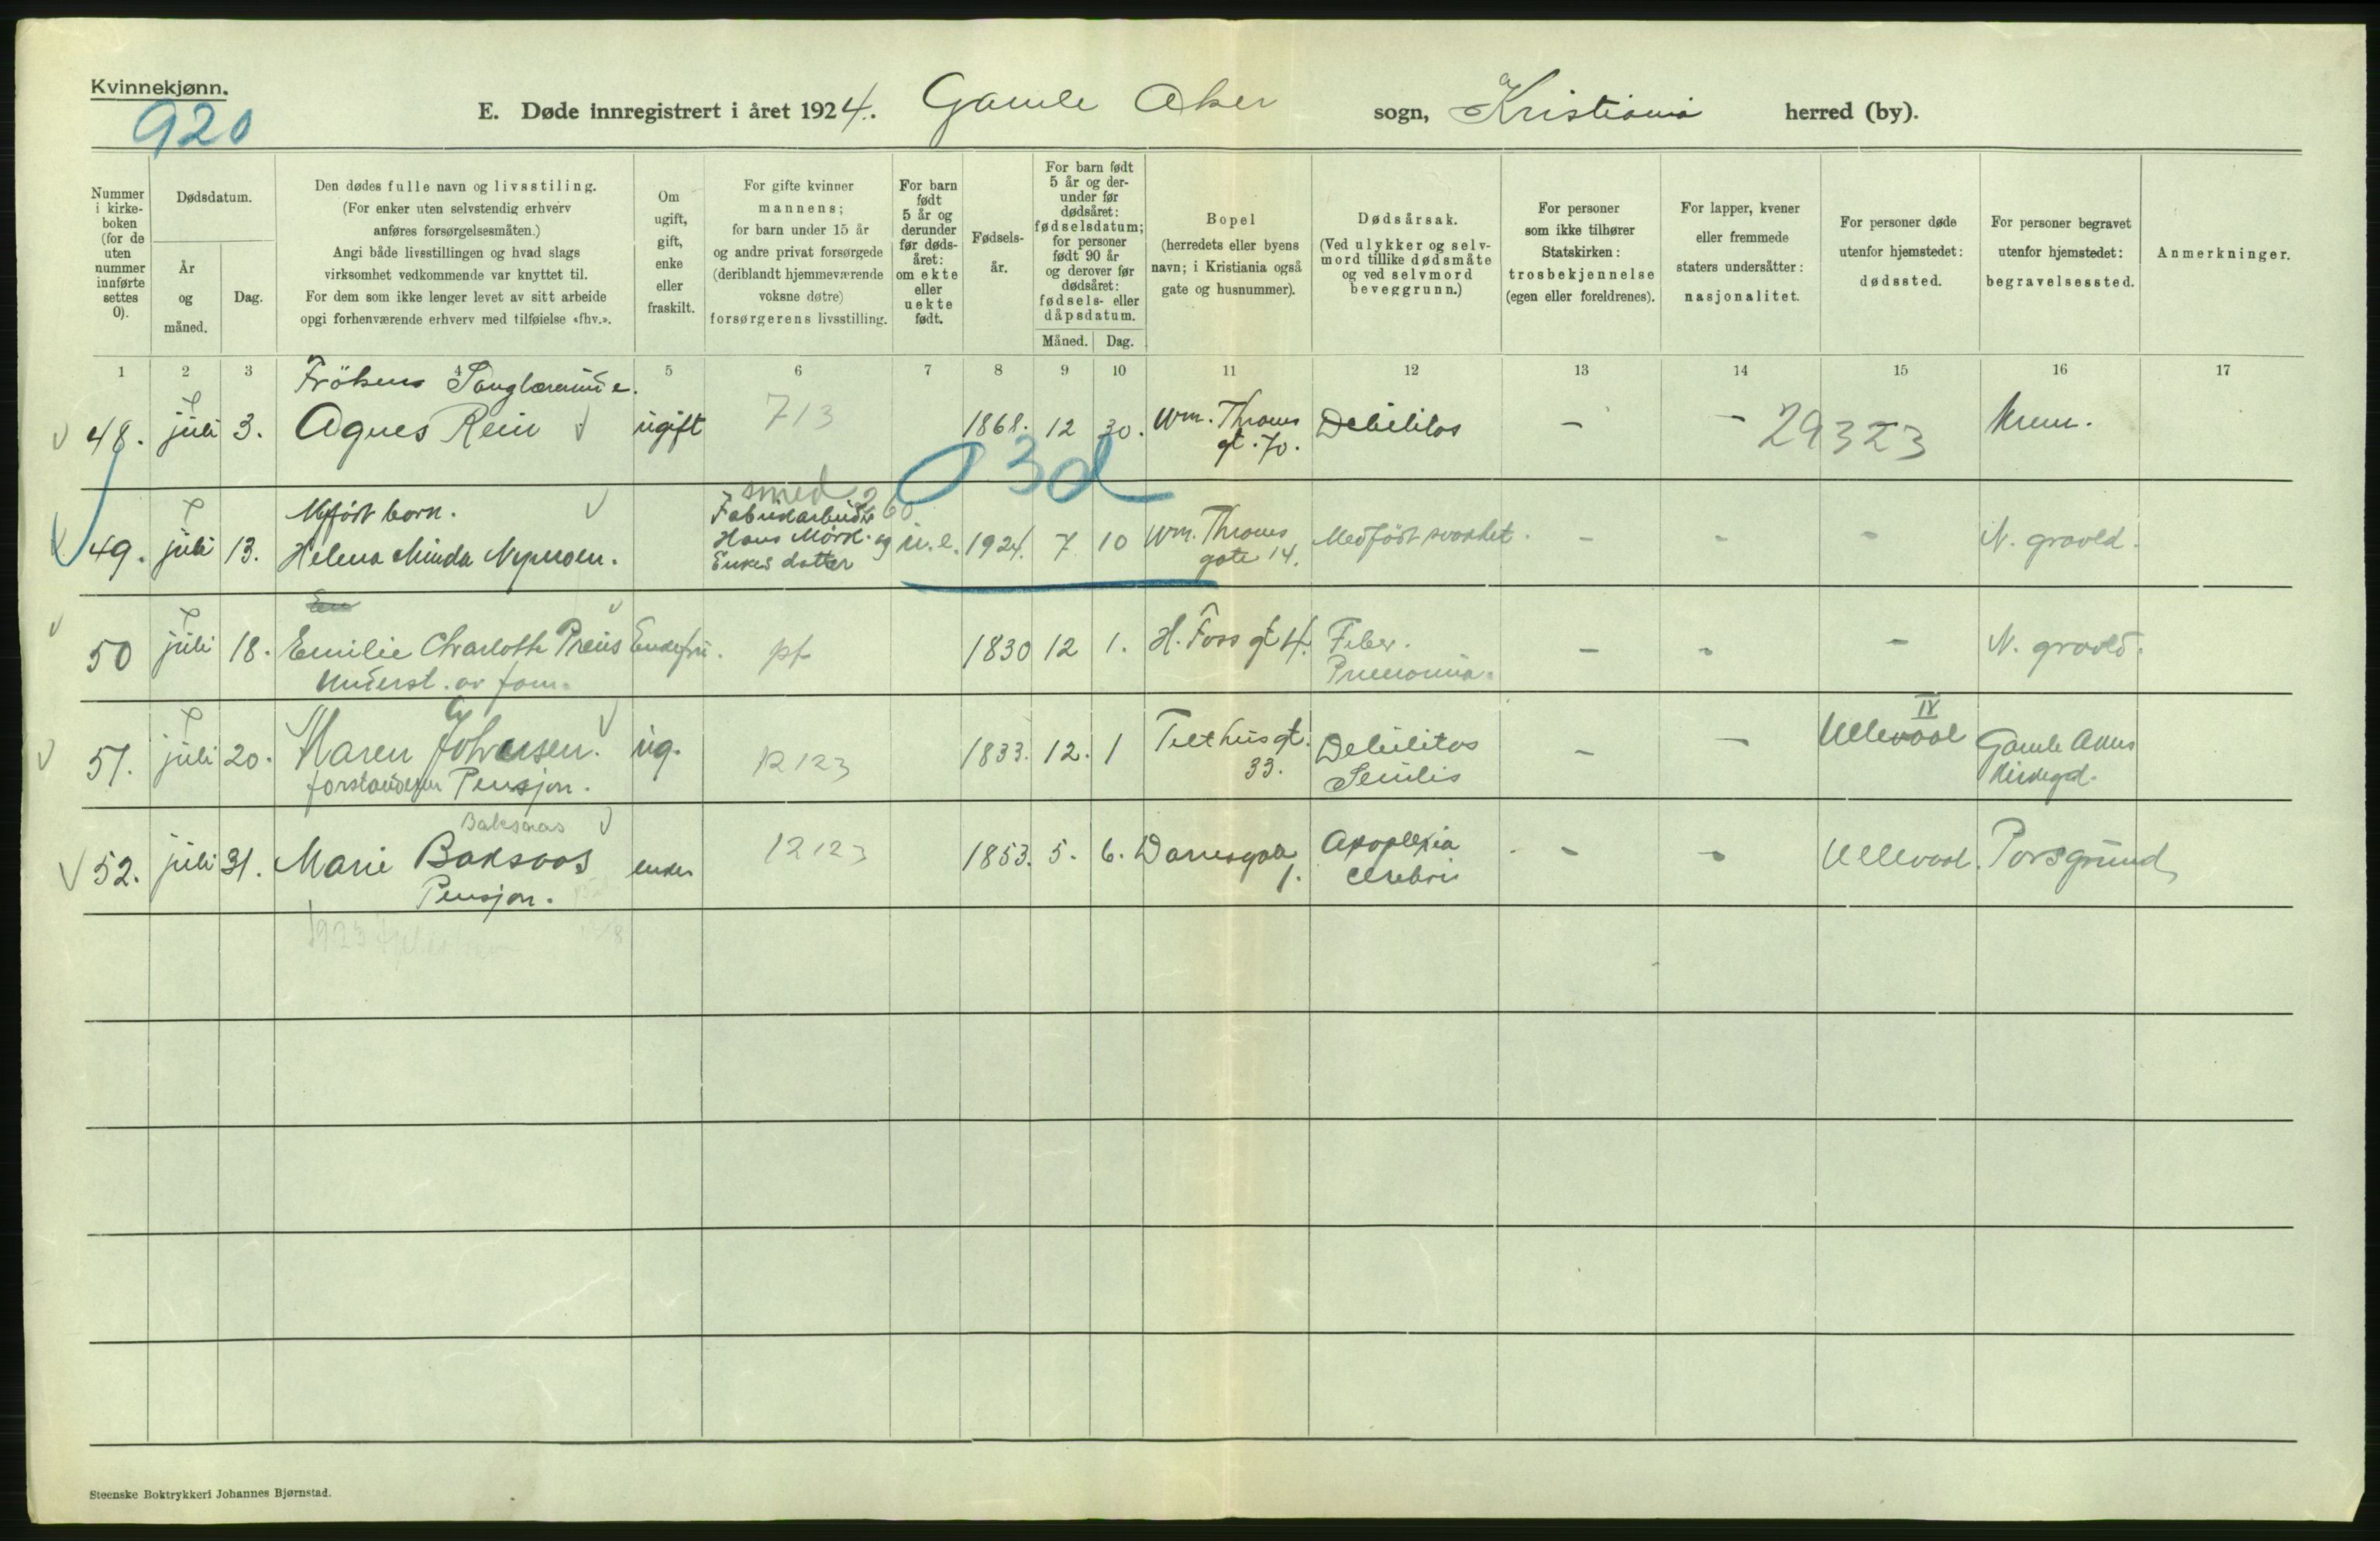 Kvinnekjønn.
920
E. Døde innregistrert i året 1924. Gamle Aker sogn, Kristiania herred (by).
Nummer i kirke-boken (for de uten nummer innførte settes 0).
Dødsdatum.
År og måned.
Dag.
Den dødes fulle navn og livsstiling.
(For enker uten selvstendig erhverv
anføres forsørgelsesmåten.)
Angi både livsstillingen og hvad slags
virksomhet vedkommende var knyttet til.
For dem som ikke lenger levet av sitt arbeide
opgi forhenværende erhverv med tilføielse «fhv.».
Om ugift, gift, enke eller fraskilt.
For gifte kvinner
mannens;
for barn under 15 år
og andre privat forsørgede
(deriblandt hjemmeværende
voksne døtre)
forsørgerens livsstilling.
For barn født 5 år og derunder før døds-året: om ekte eller uekte født.
Fødsels-år.
For barn født 5 år og der-under før dødsåret: fødselsdatum; for personer født 90 år og derover før dødsåret: fødsels- eller dåpsdatum.
Måned. Dag.
Bopel
(herredets eller byens
navn; i Kristiania også
gate og husnummer).
Dødsårsak.
(Ved ulykker og selv-
mord tillike dødsmåte
og ved selvmord
beveggrunn.)
For personer
som ikke tilhører
Statskirken:
trosbekjennelse
(egen eller foreldrenes).
For lapper, kvener
eller fremmede
staters undersåtter:
nasjonalitet.
For personer døde
utenfor hjemstedet:
dødssted.
For personer begravet
utenfor hjemstedet:
begravelsessted.
Anmerkninger.
1 2 3 4 5 6 7 8 9 10 11 12 13 14 15 16 17
Fröken
48. juli 3. Agnes Rein ugift 713 1868. 12 30. Wm. Thranes gt. 70. Debilitas - - 29323 Krem.
03d
smed
49. juli 13. Helena Minda Nymoen. Fabrikarbeider Hans Mørk og Enkes datter u. e. 1924. 7 10 Wm. Thranes gate 14. Medfödt svakhet. - - - N. gravld.
50 juli 18. Emilie Charlotte Preus Enkefru. pf 1830 12 1. H. Foss gt 4. Feber. Pneumonia. - - - N. gravld.
Underst. av fam.
51. juli 20. Maren Johansen. ug. 12123 1833. 12. 1 Telthusgt. 33. Debilitas Senilis - - Ullevaal IV Gamle Akers Kirkegd.
Pensjon.
Baksaas
52. juli 31. Marie Baksaas enke 12123 1853. 5. 6. 1. Apoplexia cerebri - - Ullevaal. Porsgrund
Pensjon.
Steenske Boktrykkeri Johannes Bjørnstad.